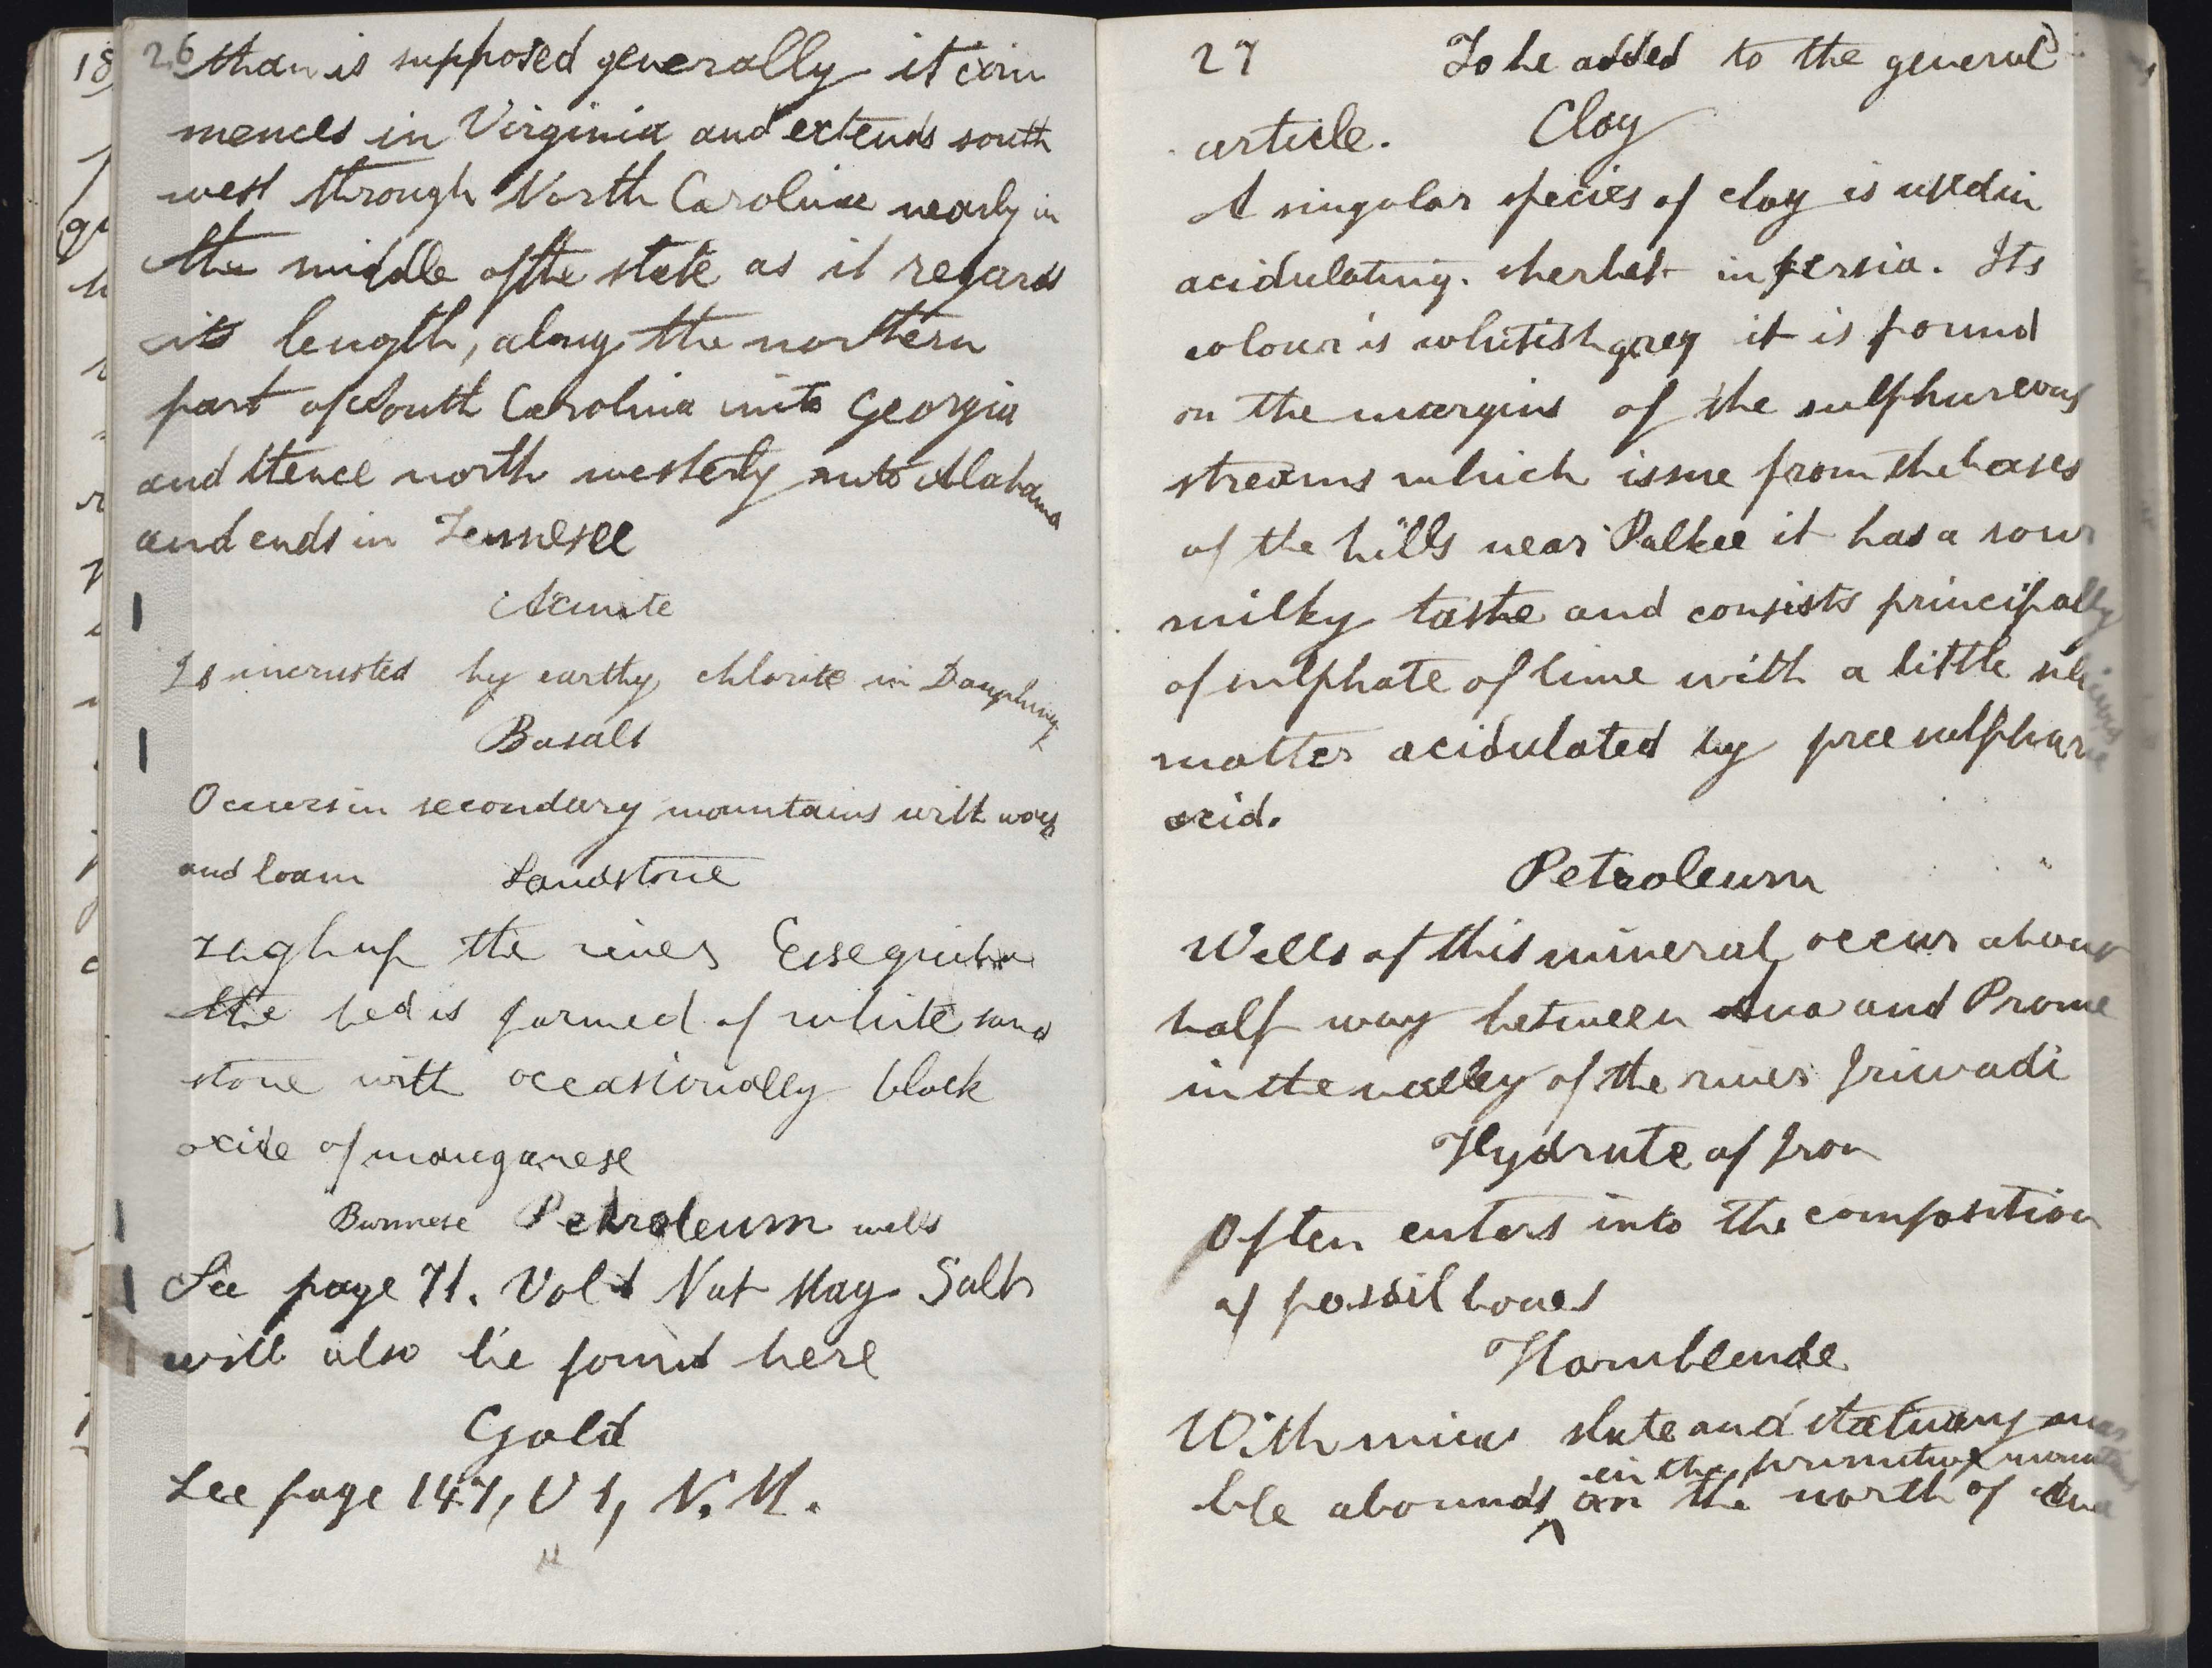 26 than is supposed generally it com
mences in Virginia and extends south
west through North Carolina nearly in
the middle of the state as it regards
its length, along the northern
part of South Carolina into Georgia
and thence north westerly into Alabama
and ends in Tennesee
Axinite
Is incrusted by earthy chlorite in Dauphiny
Basalt
Occurs in secondary mountains with wacke
and loam Sandstone
high up the river Essequibo
the bed is formed of white sand
stone with occasionally black
oxide of manganese
Burmese Petroleum wells
See page 71. Vol 1 Nat Mag. Salt
will also be found here
Gold
See page 147, V 1, N. M.
27 To be added to the general
article. Clay
A singular species of clay is used in
acidulating. sherbet in persia. Its
colour is whitish grey it is found
on the margins of the sulphureous
streams which issue from the bases
of the hills near Dalkee it has a sour
milky taste and consists principally
of sulphate of lime with a little silicious
matter acidulated by free sulphuric
acid.
Petroleum
Wells of this mineral occur about
half way between Ava and Prome
in the valley of the river Iriwadi
Hydrate of Iron
Often enters into the composition
of fossil bones
Hornblende
With mica slate and statuary mar
in the primitive mountains
ble abounds on the north of Ava